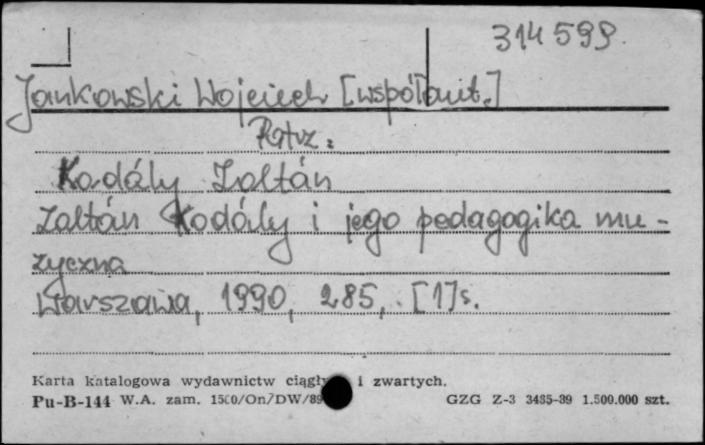 314599
Jankowski Wojciech [współaut.]
Patrz:
Kodály Zoltán
Zoltán Kodály i jego pedagogika mu-
zyczna
Warszawa, 1990, 285, [1]s.
Karta katalogowa wydawnictw ciągły i zwartych.
Pu-B-144 W.A. zam. 1500/On/DW/89 GZG Z-3 3485-89 1.500.000 szt.